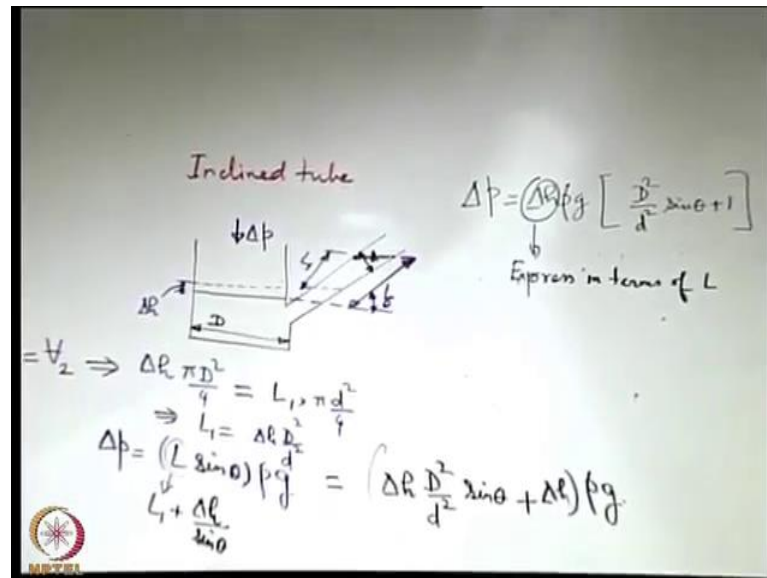 Inclined tube
Δp = Δh ρg [ D²/d² sinθ + 1 ]
Express in terms of L
↓Δp
L₁
Δh
D
= V₂ ⇒ Δh πD²/4 = L₁ × πd²/4
⇒ L₁ = Δh D²/d²
Δp = (L sinθ) ρg = (Δh D²/d² sinθ + Δh) ρg
L₁ + Δh/sinθ
NPTEL